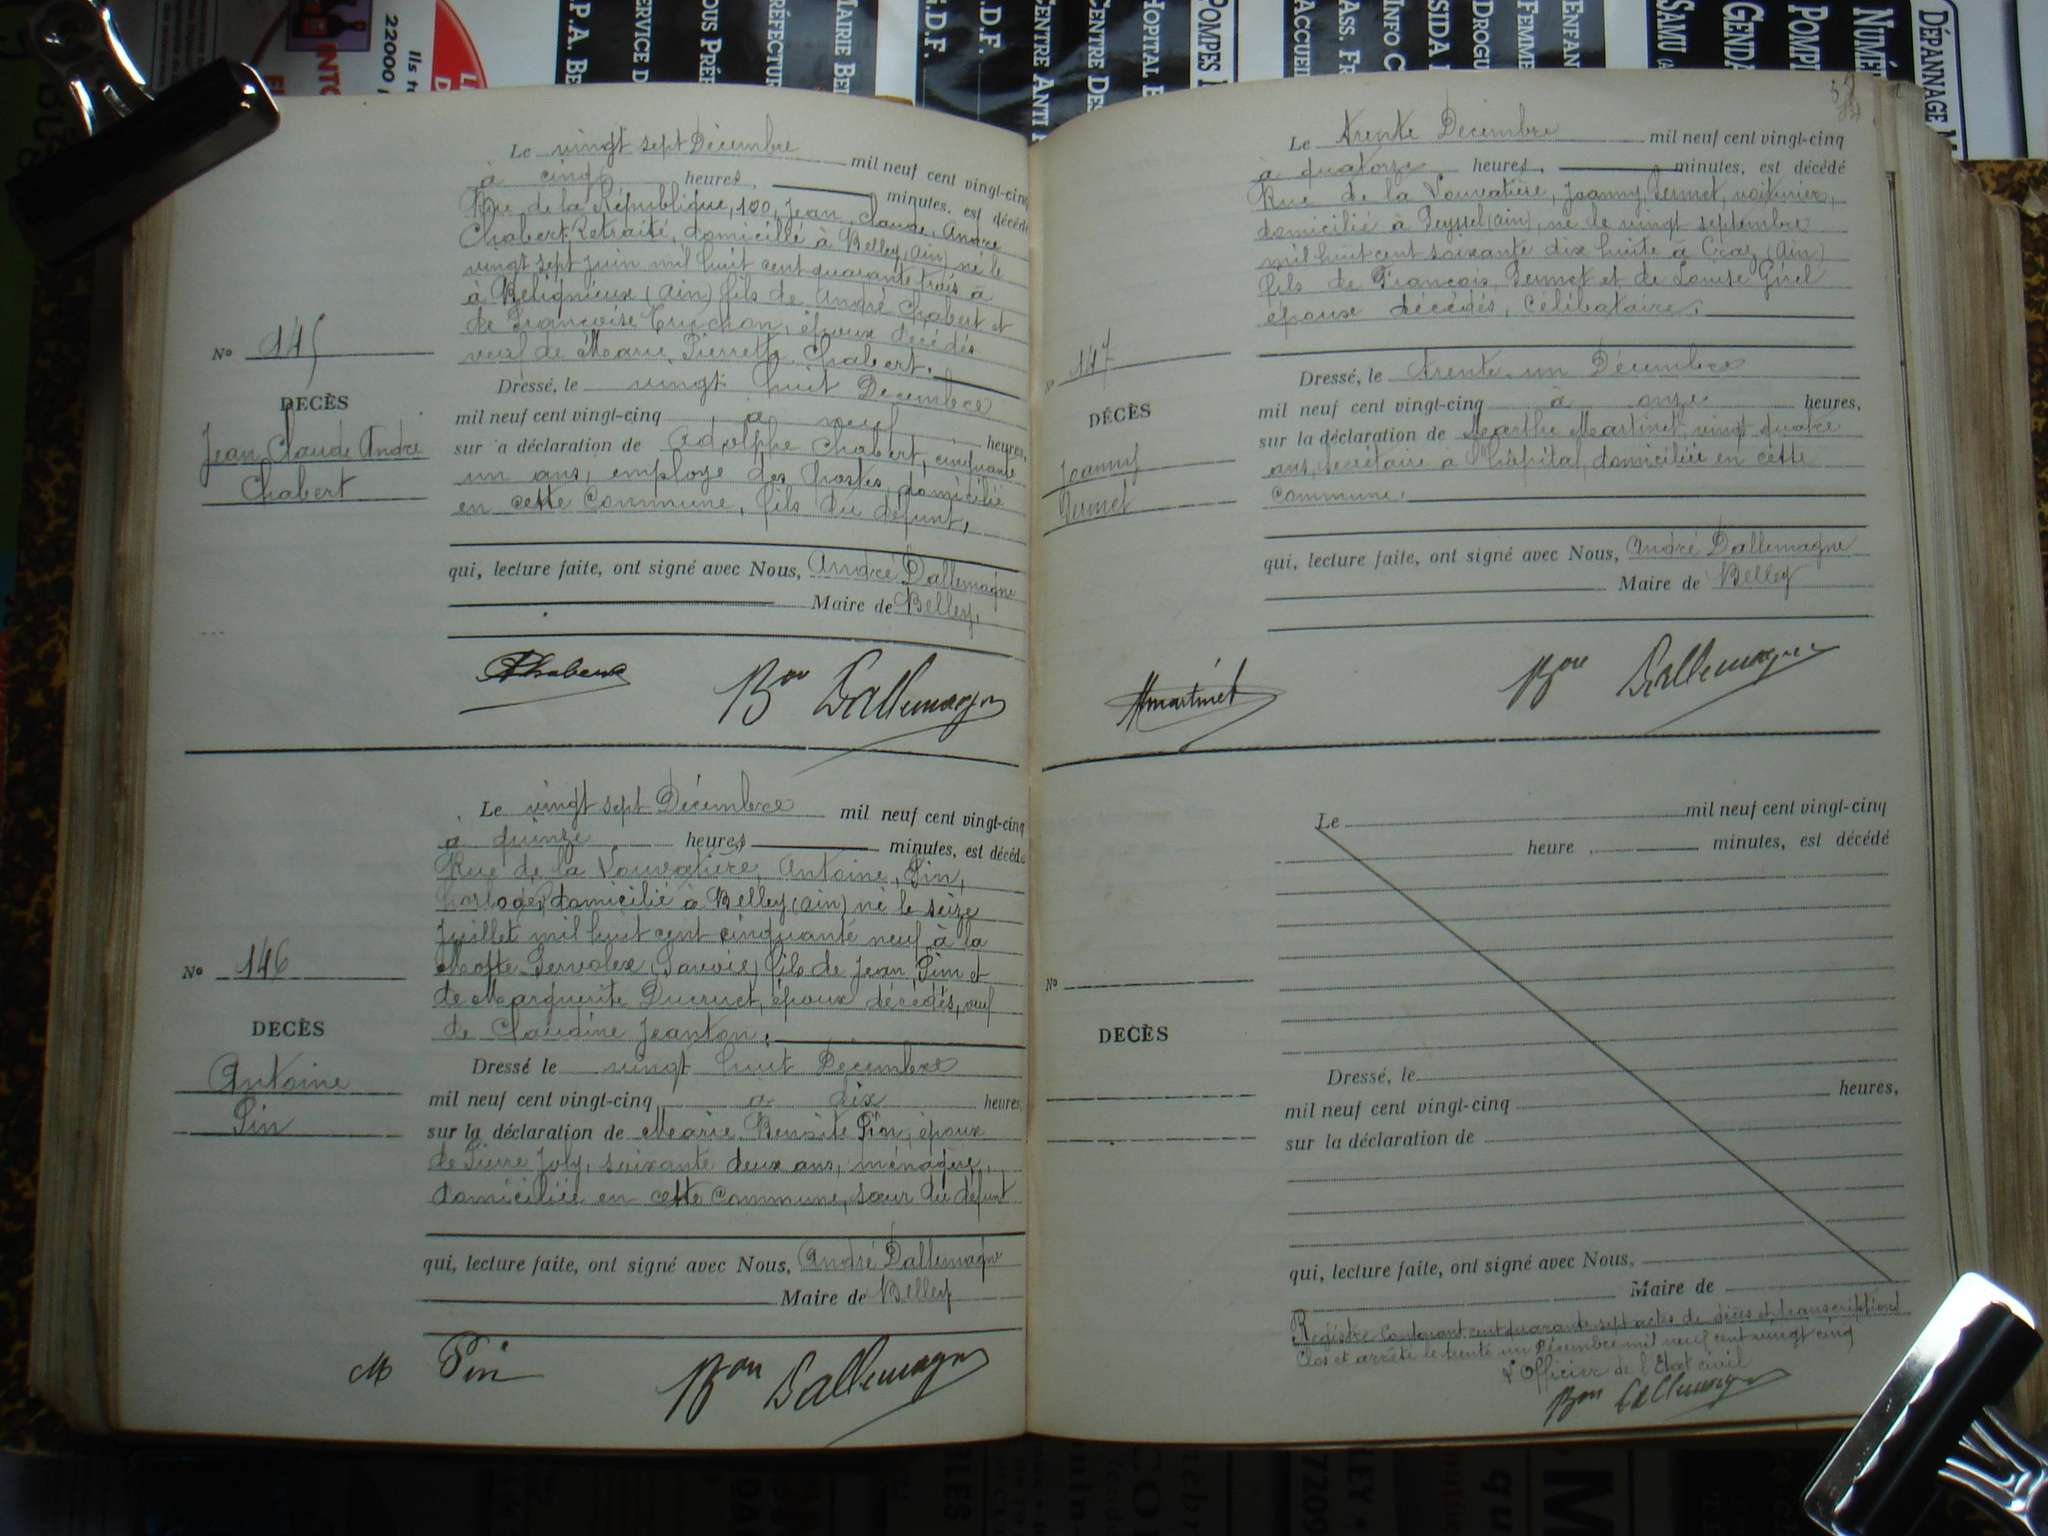 DÉPANNAGE
NUMÉ
POMPI
GENDA
SAMU
ENFAN
FEMME
DROGU
SIDA
INFO C
ASS. FR
ACCUEI
POMPES
HOPITAL
CENTRE DE
CENTRE ANTI
D.D.F.
G.D.F.
MARIE BE
RÉFECTUR
OUS PRÉ
ERVICE D
.P.A. BE
22000
Ils
Le vingt sept Décembre mil neuf cent vingt-cinq
à cinq heures, minutes, est décédé
Rue de la République, 100, Jean, Claude, André
Chabert Retraité, domicilié à Belley (Ain) né le
vingt sept juin mil huit cent quarante trois à
à Béligneux (Ain) fils de André Chabert et
de Françoise époux décédés
veuf de Marie Pierrette Chabert.
No 145
DECÈS
Jean Claude André
Chabert
Dressé, le vingt huit Décembre
mil neuf cent vingt-cinq à neuf heures,
sur a déclaration de Adolphe Chabert, cinquante
un ans, employé des Postes, domicilié
en cette Commune, fils du défunt,
qui, lecture faite, ont signé avec Nous, André Dallemagne
Maire de Belley,
AChabert Bon Dallemagne
Le vingt sept Décembre mil neuf cent vingt-cinq
à quinze heures minutes, est décédé
Rue de la Vouvatière, Antoine, Pin,
horloger, domicilié à Belley (Ain) né le seize
Juillet mil huit cent cinquante neuf à la
Motte Servolex (Savoie) fils de Jean Pin et
de Marguerite Ducruet, époux décédés, veuf
de Claudine Jeanton.
No 146
DECÈS
Antoine
Pin
Dressé le vingt huit Décembre
mil neuf cent vingt-cinq à dix heures,
sur la déclaration de Marie Benoite Pin, époux
de Pierre Joly, soixante deux ans, ménagère,
domiciliée en cette Commune, sœur du défunt
qui, lecture faite, ont signé avec Nous, André Dallemagne
Maire de Belley
M Pin Bon Dallemagne
Le trente Décembre mil neuf cent vingt-cinq
à quatorze heures, minutes, est décédé
Rue de la Vouvatière, Joanny, Permet, voiturier,
domicilié à Seyssel (Ain), né le vingt septembre
mil huit cent soixante dix huite à Craz (Ain)
fils de François Permet et de Louise Girel
époux décédés, célibataire.
No 147
DÉCÈS
Joanny
Permet
Dressé, le trente un Décembre
mil neuf cent vingt-cinq à onze heures,
sur la déclaration de Marthe Martinet, vingt quatre
ans, secrétaire à l'hôpital, domiciliée en cette
commune.
qui, lecture faite, ont signé avec Nous, André Dallemagne
Maire de Belley
Mmartinet Bon Dallemagne
Le mil neuf cent vingt-cinq
heure , minutes, est décédé
No
DECÈS
Dressé, le
mil neuf cent vingt-cinq heures,
sur la déclaration de
qui, lecture faite, ont signé avec Nous,
Maire de
Registre contenant cent quarante sept actes de décès et transcriptions
Clos et arrêté le trente un Décembre mil neuf cent vingt cinq
L'Officier de l'Etat civil
Bon Dallemagne